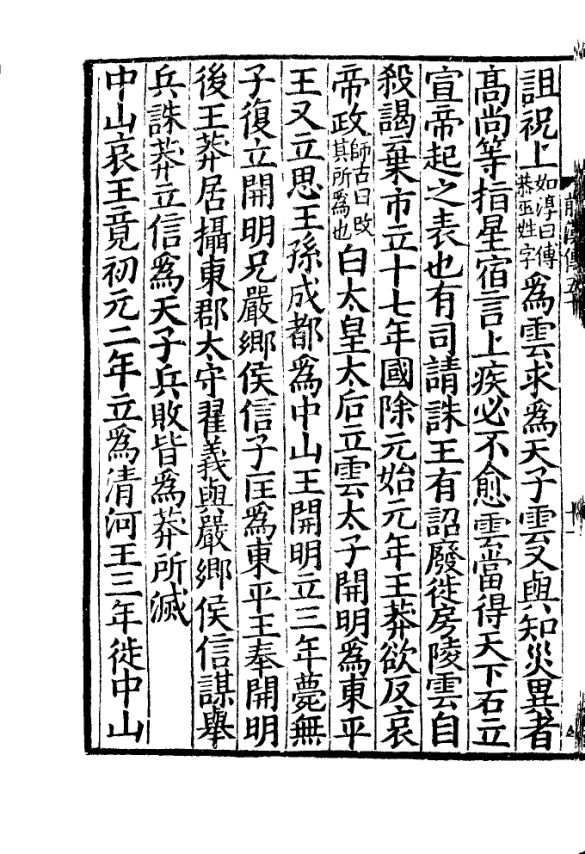 詛祝上如淳曰傅恭巫姓字爲雲求爲天子雲又與知災異者
髙尚等指星宿言上疾必不愈雲當得天下石立
宣帝起之表也有司請誅王有詔廢徙房陵雲自
殺謁棄市立十七年國除元始元年王莽欲反哀
帝政師古曰改其所爲也白太皇太后立雲太子開明爲東平
王又立思王孫成都爲中山王開明立三年薨無
子復立開明兄嚴鄉侯信子匡爲東平王奉開明
後王莽居攝東郡太守翟義與嚴鄉侯信謀舉
兵誅莽立信爲天子兵敗皆爲莽所滅
中山哀王竟初元二年立爲清河王三年徙中山